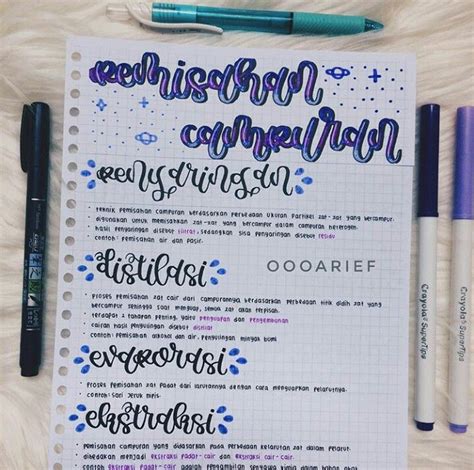 Pemisahan
campuran
penyaringan
• teknik pemisahan campuran berdasarkan perbedaan ukuran partikel zat-zat yang bercampur.
• digunakan untuk memisahkan zat-zat yang bercampur dalam campuran heterogen.
• hasil penyaringan disebut filtrat, sedangkan sisa penyaringan disebut residu
• contoh: pemisahan air dan pasir.
distilasi
OOOARIEF
• Proses pemisahan zat cair dari campurannya berdasarkan perbedaan titik didih zat yang
bercampur sehingga saat menguap, semua zat akan terpisah.
• terdapat 2 tahapan penting, yaitu penguapan dan pengembunan
• cairan hasil penyulingan disebut distilat
• contoh: Pemisahan alkohol dan air, penyulingan minyak bumi
evaporasi
• Proses pemisahan zat padat dari larutannya dengan cara menguapkan pelarutnya.
• contoh: sari jeruk manis.
ekstraksi
• pemisahan campuran yang didasarkan pada perbedaan kelarutan zat dalam pelarut.
• dibedakan menjadi ekstraksi padat-cair dan ekstraksi cair-cair.
• contoh: ekstraksi padat-cair adalah pengambilan senyawa kimia dalam bahan
Crayola SuperTips
Crayola SuperTips